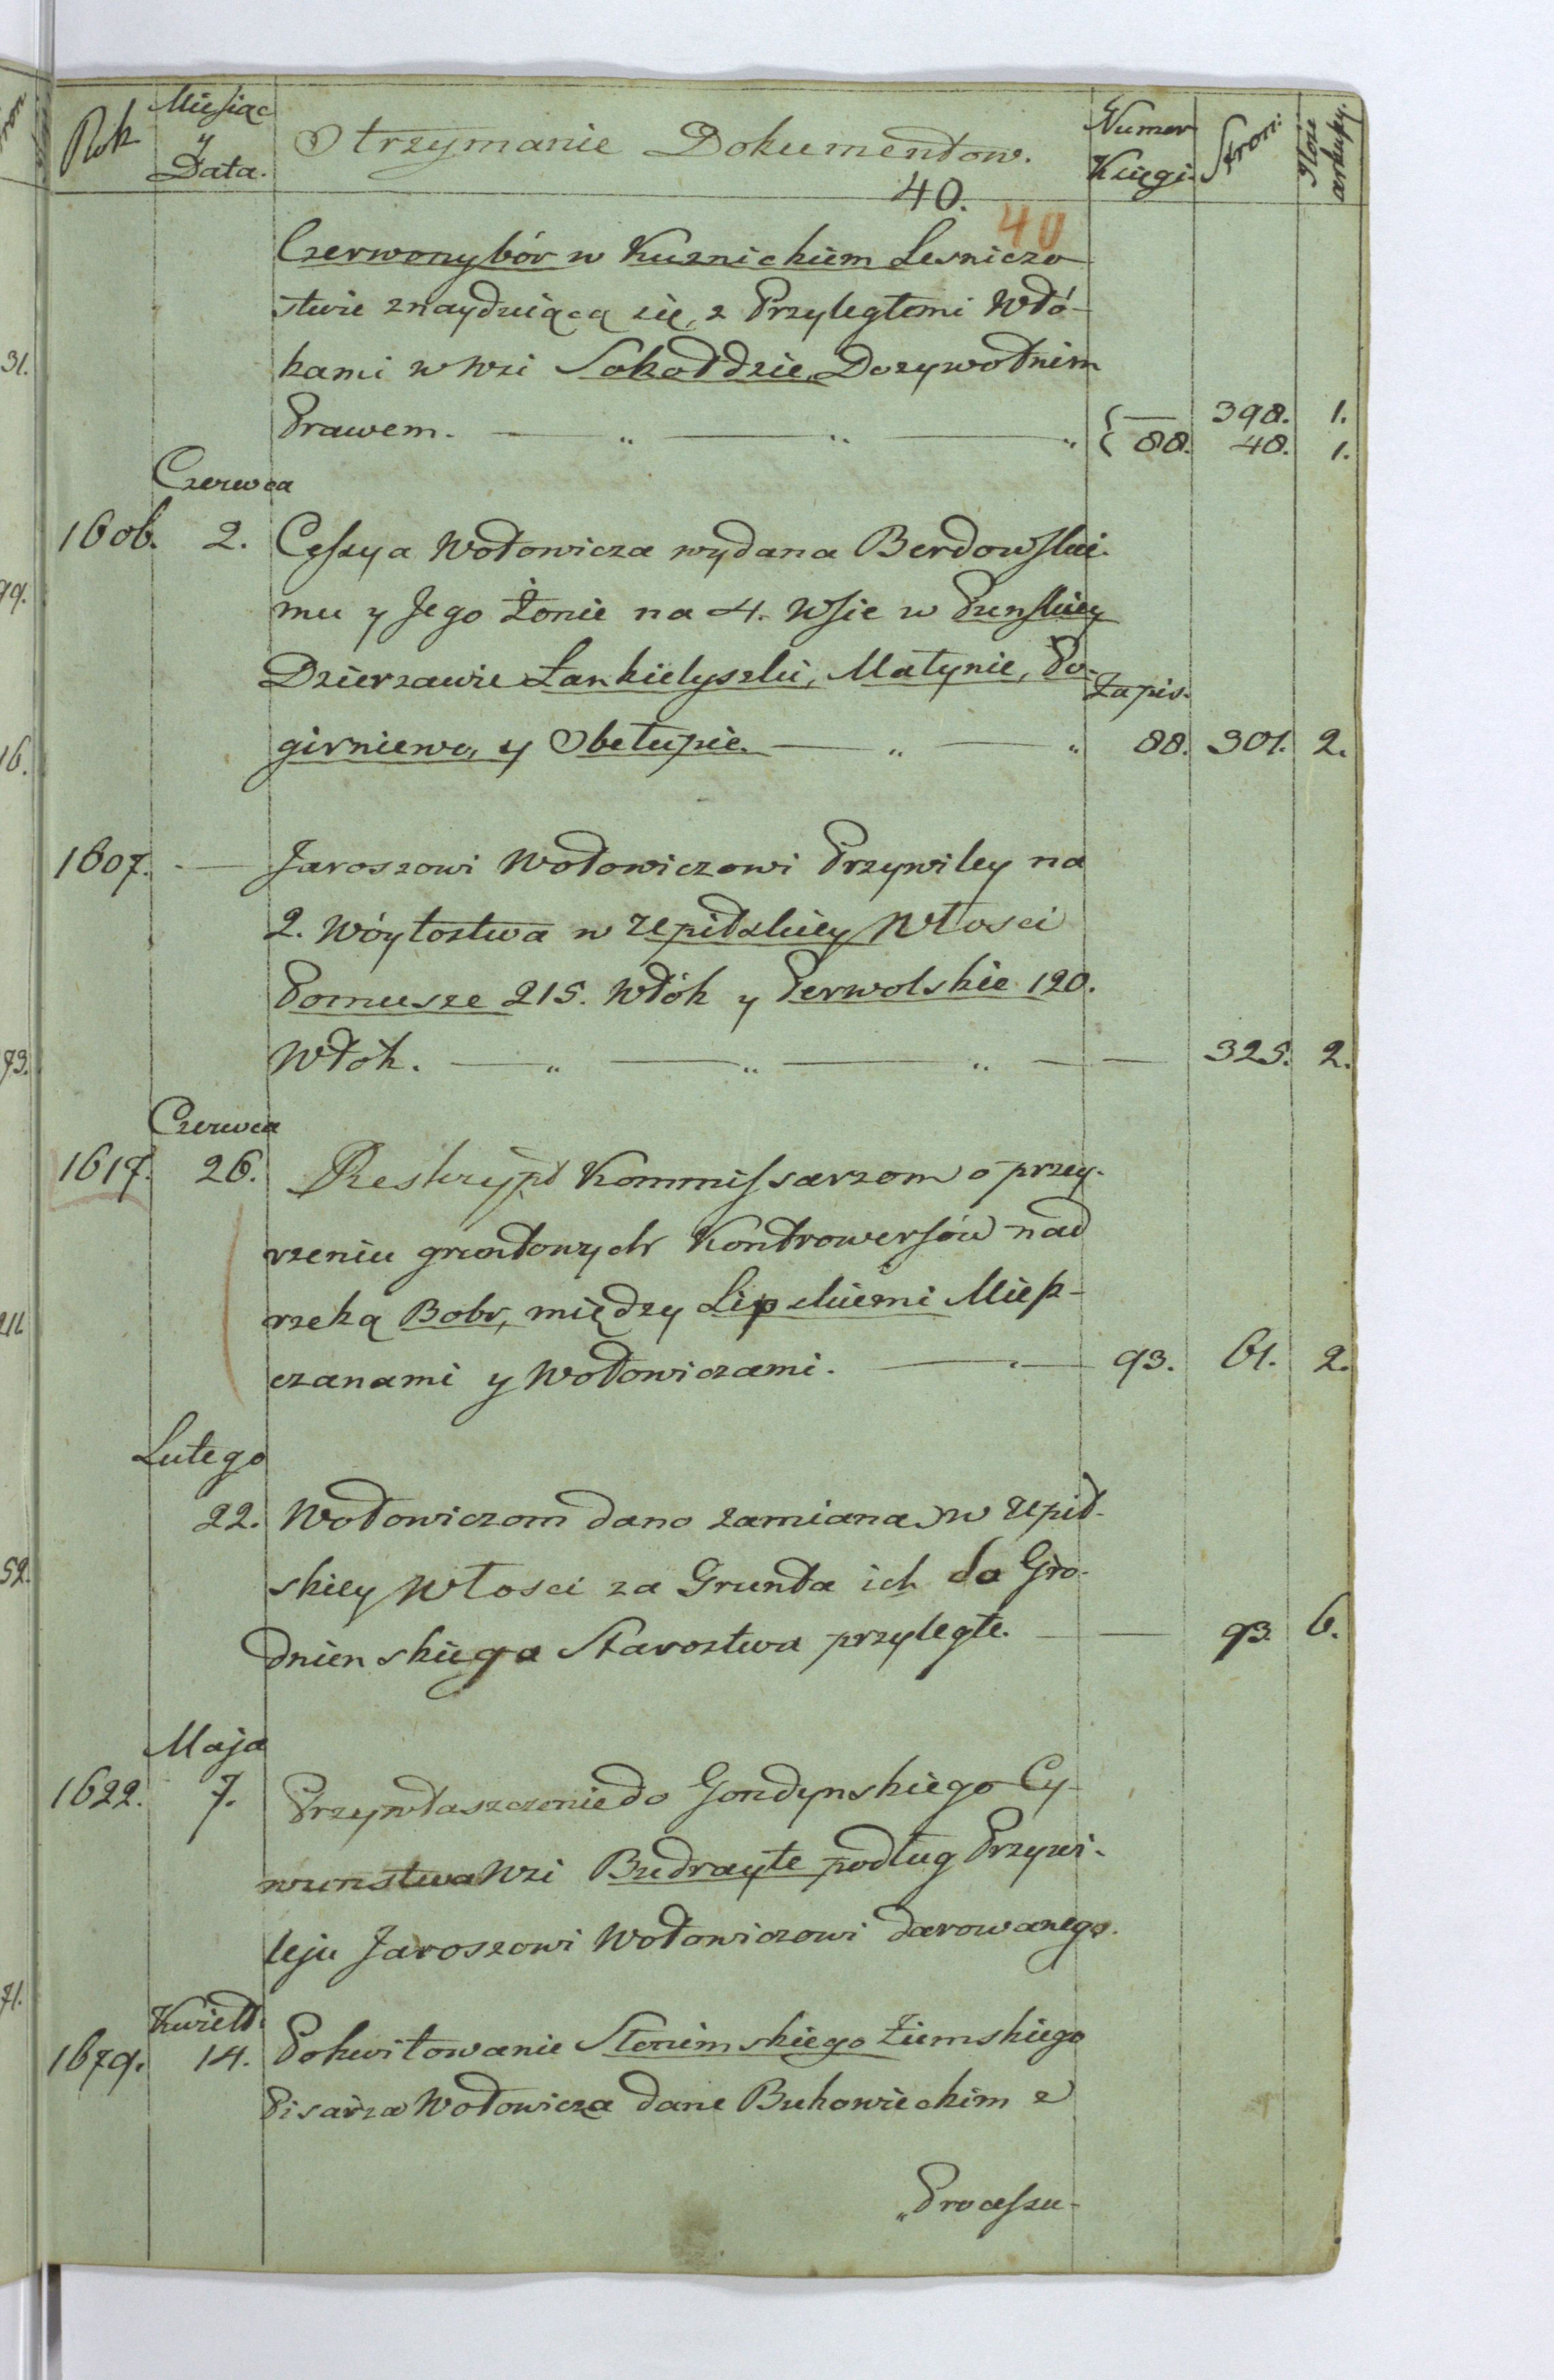 Rok
Miesiąc
y
Data.
Otrzymanie Dokumentow.
Numer
Księgi.
Stron:
Ilość
arkuszy.
40.
40
Czerwony bór w Kuznickiem Lesniczo
stwie znaydziącą się, z Przyległemi Włó-
kami w wsi Sokołdzie, Dozywotnim
Prawem. — „ — „ — „ { — 398. 1.
88. 48. 1.
Czerwca
1606. 2. Cessya Wołowicza wydana Berdowskie-
mu y Jego Żonie na 4. Wsie w Punskiey
Dzierzawie Łankielyszki, Matynie, Po-
Zapis.
girniewo, y Obełupie. — „ — „ 88. 301. 2.
1607. — Jaroszowi Wołowiczowi Przywiley na
2. Wóytostwa w Repidskiey Włosci
Pomusze 215. Włók y Perwolskie 120.
Włók. — „ — „ — „ — — 325. 2.
Czerwca
1617. 26. Reskrypt Kommissarzom o przey-
rzeniu gruntowych Kontrowersów nad
rzeką Bobr, między Lipskiemi Miesz-
czanami y Wołowiczami. — „ — 93. 61. 2.
Lutego
22. Wołowiczom dano zamiana w Repid-
skiey Włosci za Grunta ich do Gro-
dnienskiego Starostwa przyległe. — — 93. 6.
Maja
1622. 7. Przywłaszczenie do Gondynskiego Cy-
wunstwa Wsi Budrayte podług Przywi-
leju Jaroszowi Wołowiczowi darowanego.
Kwiet.
1679. 14. Pokwitowanie Słonimskiego Ziemskiego
Pisarza Wołowicza dane Bukowieckim z
„Processu-
31.
99.
16.
73.
211.
52.
71.